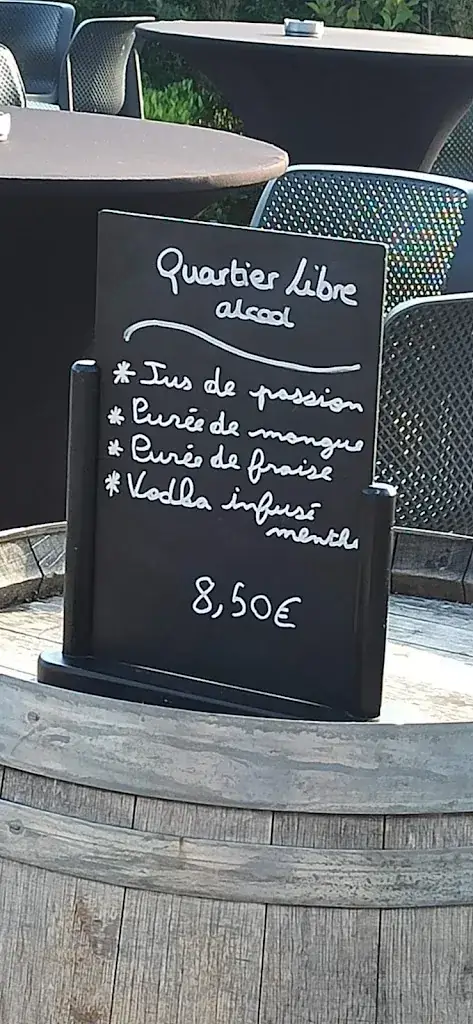 Quartier Libre
alcool
* Jus de passion
* Purée de mangue
* Purée de fraise
* Vodka infusé
menthe
8,50€